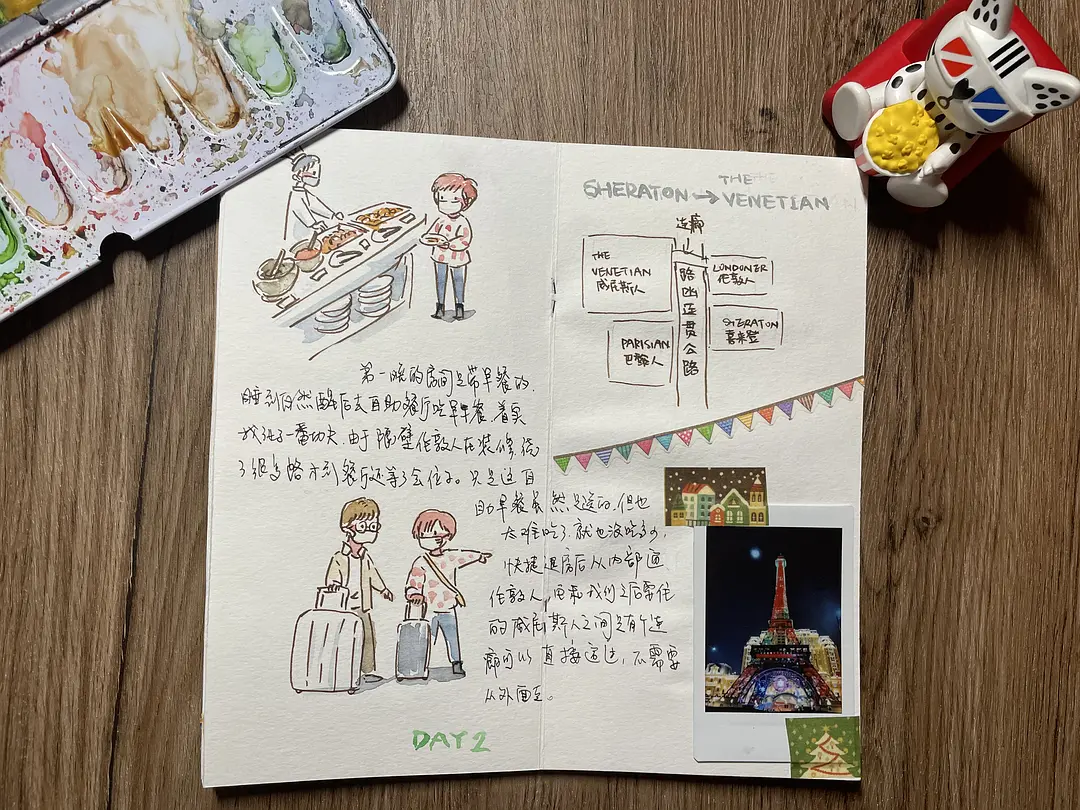 第一晚的房间是带早餐的.
睡到自然醒后去自助餐厅吃早餐.着实
找了一番功夫.由于隔壁伦敦人在装修,绕
了很多路才到餐厅还等了会位子。只是这自
助早餐虽然是送的.但也
太难吃了.就也没吃多少,
快捷退房后从内部通
伦敦人,原来我们之后要住
的威尼斯人之间是有个连
廊可以直接通过,不需要
从外面走。
DAY 2
SHERATON → THE VENETIAN
连廊
THE
VENETIAN
威尼斯人
LONDONER
伦敦人
路
凼
连
贯
公
路
PARISIAN
巴黎人
SHERATON
喜来登